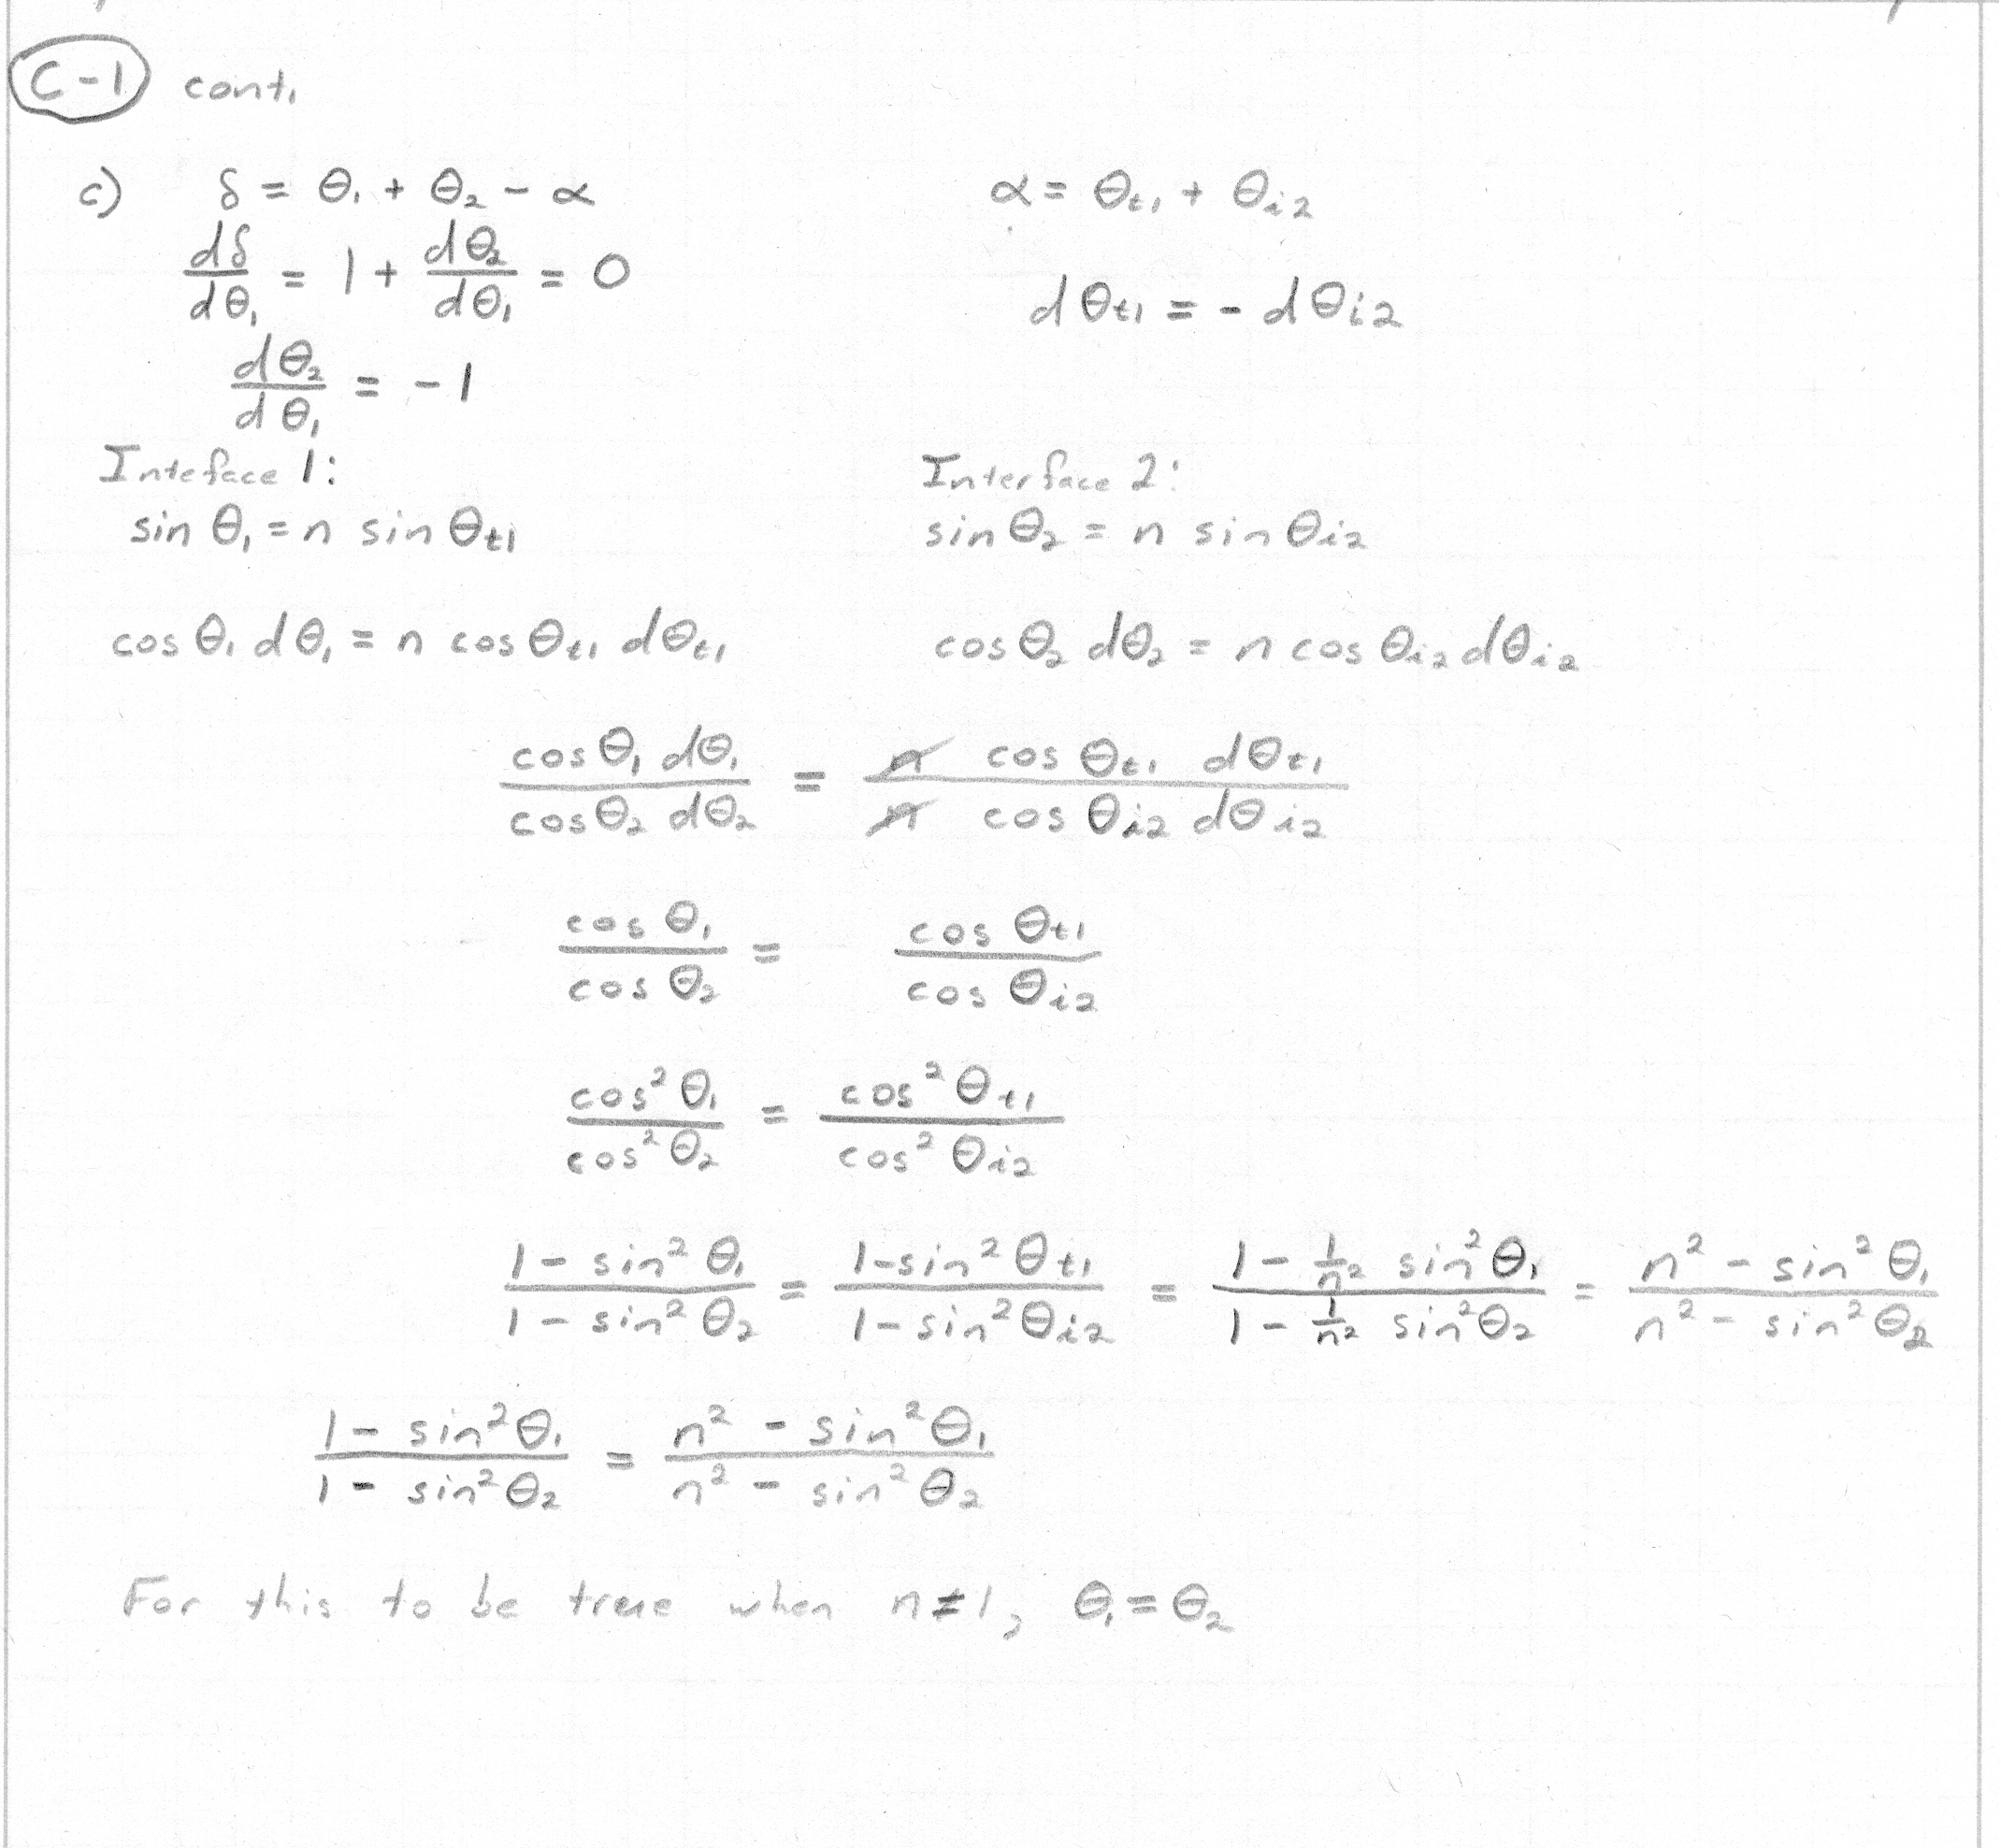 C-1 cont.
c) δ = θ₁ + θ₂ - α    α = θ_t1 + θ_i2
dδ/dθ₁ = 1 + dθ₂/dθ₁ = 0    dθ_t1 = - dθ_i2
dθ₂/dθ₁ = -1
Inteface 1:    Interface 2:
sin θ₁ = n sin θ_t1    sin θ₂ = n sin θ_i2
cos θ₁ dθ₁ = n cos θ_t1 dθ_t1    cos θ₂ dθ₂ = n cos θ_i2 dθ_i2
(cos θ₁ dθ₁)/(cos θ₂ dθ₂) = (n cos θ_t1 dθ_t1)/(n cos θ_i2 dθ_i2)
(cos θ₁)/(cos θ₂) = (cos θ_t1)/(cos θ_i2)
(cos² θ₁)/(cos² θ₂) = (cos² θ_t1)/(cos² θ_i2)
(1 - sin² θ₁)/(1 - sin² θ₂) = (1 - sin² θ_t1)/(1 - sin² θ_i2) = (1 - 1/n² sin² θ₁)/(1 - 1/n² sin² θ₂) = (n² - sin² θ₁)/(n² - sin² θ₂)
(1 - sin² θ₁)/(1 - sin² θ₂) = (n² - sin² θ₁)/(n² - sin² θ₂)
For this to be true when n ≠ 1, θ₁ = θ₂